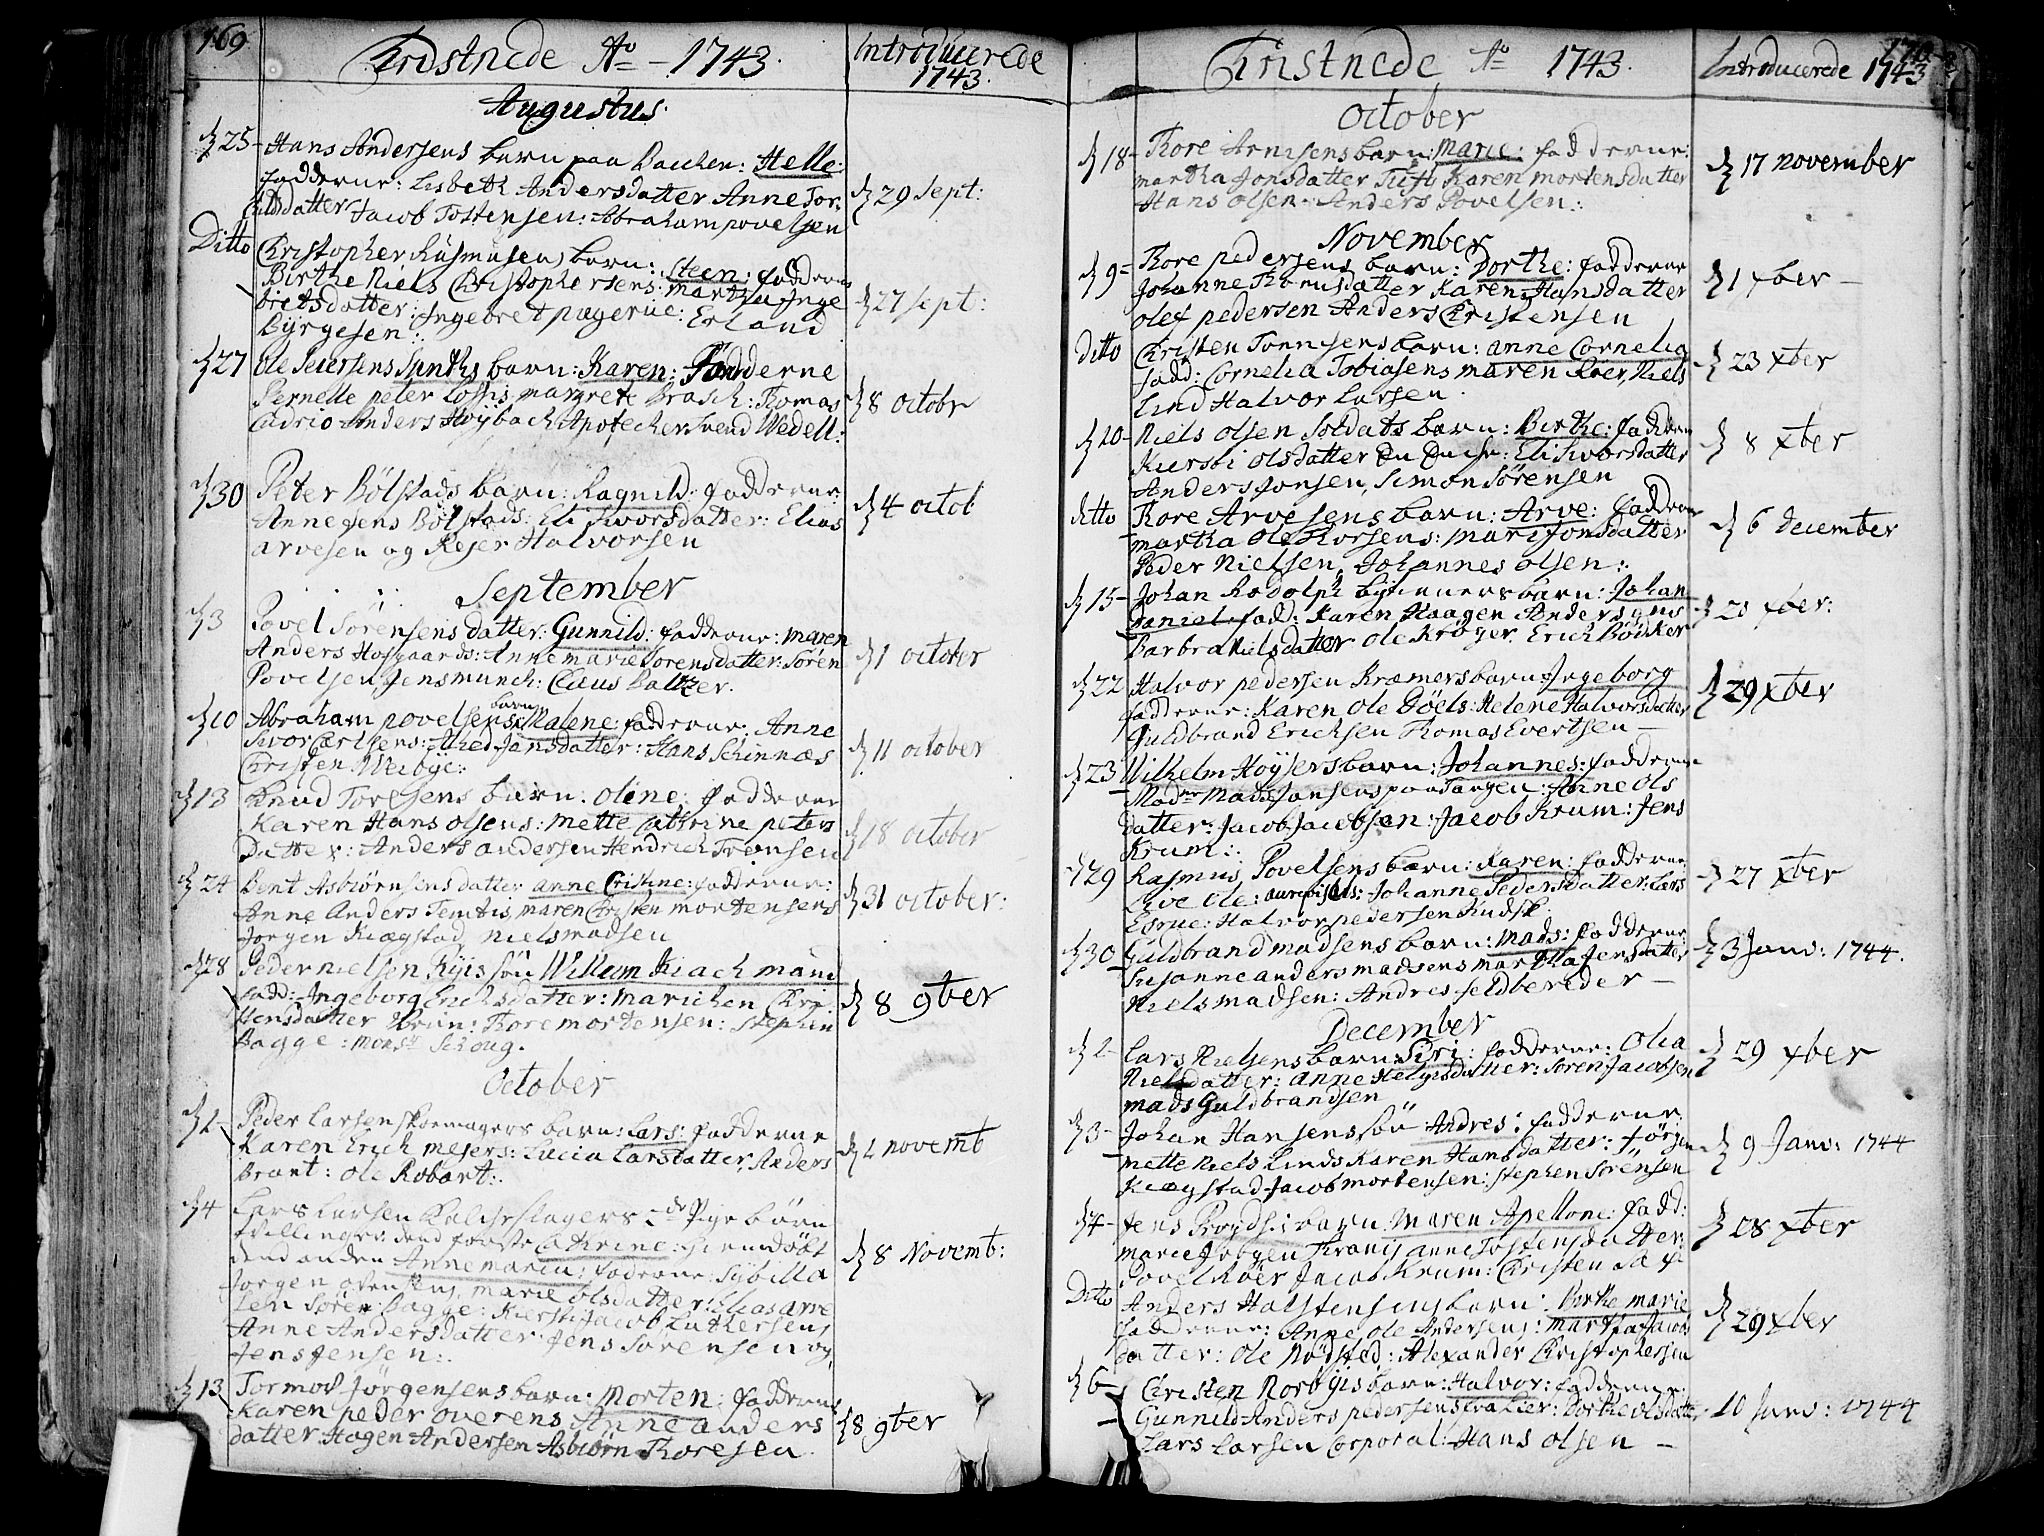 169
Christnede Aº – 1743.
Introducerede
1743.
Augustus
25 – Hans Andersens barn paa Bachen: Helle:
fadderne: Lisbeth Andersdatter Anne Tor
datter Jacob Tostensen: Abraham povelsen
29 Sept:
Ditto Christopher Rasmusens barn: Steen: fadderne
Birthe Niels Christophersens: Martha Inge
bretsdatter: Ingebret pagerue: Erland
Byrgesen:
27 sept:
27 Ole Seiersens barn: Karen: Fadderne
Pernelle peter Loftis margrete Brasch: Thomas
Cudrio Anders Høybach Apotecher Svend Wedell:
8 octobr
30 Peter Bølstads barn: Ragnild: fadderne
Anne Jens Bølstads: Eli Siworsdatter: Elias
arvesen og Rejer Halvorsen
4 octob
September
3 Povel Sørensens datter: Gunnild: fadderne: maren
Anders Hofgaards: Anne marie Sorensdatter: Søren
Povelsen, Jens munch: Claus Baltzer.
1 october
10 Abraham povelsens barn Malene: fadderne: Anne
Siwor Carlsens: Jansdatter: Hans Schinnæs
Christen Weibye:
11 october
13 Knud Toresens barn: oline: fadderne
Karen Hans olsens: mette Cathrine peters
Datter: Anders andersen Hendrich Tronsen
18 october
24 Bent Asbiørnsens datter anne Cristine: fadderne:
Anne Anders Temtis, maren Christen mortensens
Jorgen Kiægstad, niels madsen
31 october:
28 Peder nielsen Ryis søn Willum Kiachmand
fadd: Ingeborg Erichsdatter: marichen Chri
stensdatter Brun: Thore mortensen: Stephen
Bagge: monsr Schoug.
8 9ber
October
2 – Peder Larsen skoemagers barn: Lars: fadderne
Karen Erich mejers: Lucia Larsdatter, Anders
Brant: ole Robart:
2 novemt
4 Lars Larsen Kalcheslagers 2de Pige børn
tvillinger. dend første Cathrine: hiemdøbt
dend anden Anne maria: fadderne: Sybilla
Jorgen ovensens, marie olsdatter: Elias arve
sen Søren Bagge: Kiersti Jacob Luthersens
Anne Andersdatter: Jens Sørensen og
Jens Jensen:
8 Novemb:
13 Tormod Jørgensens barn: Morten: fadderne
Karen peder overens Anne anders
datter Hagen Andersen Asbiørn Thoresen
8 9ber
Christnede Aº 1743.
Introducerede 1743
October
18 – Thore Arnesens barn: marie: fadderne:
martha Jonsdatter Tufts Karen mortensdatter
Hans olsen. Anders Povelsen:
17 november
November
9 – Thore pedersens barn: Dorthe: fadderne
Johanne Thomisdatter Karen Hansdatter
olef pedersen Anders Christensen
1 xber –
ditto Christen Tonnesens barn: anne Cornelia
fadd: Cornelia Tobiasens maren Røer, Niels
Lind Halvor Larsen.
23 xber
10 – Niels olsen Soldats barn: Birthe: fadderne
Kiersti olsdatter: Eli Siworsdatter
Anders Jonsen, Simon Sørensen
8 xber
ditto Thore Arvesens barn: Arve: fadderne
martha ole Thorsens: mari Jonsdatter
Peder Nielsen, Johannes olsen:
6 december
15 – Johan Rodolph barn: Johan
Daniel. fadd: Karen Haagen Andersens
Barbra Nielsdatter ole Krøger Erich Bødker
20 xber:
22 Halvor pedersen Kræmers barn: Ingeborg
fadderne: Karen ole Bøels: Helene Halvorsdatter
Guldbrand Erichsen Thomas Evertsen –
29 xber
23 Wilhelm Høysers barn: Johannes: fadderne
Made Mads Jansens paa Tangen: Anne ols
datter: Jacob Jacobsen: Jacob Krum: Jens
Krum:
29 Rasmus Povelsens barn: Karen: fadderne
Live ole: Johanne Pedersdatter: Lars
Esrue: Halvor pedersen Kudsk:
27 xber
30 Guldbrand madsens barn: mads: fadderne
Susanne anders madsens martha Jensdatter
Niels madsen: Andres feldbereder –
3 Janv: 1744.
December
2 – Lars Nielsens barn: Siri: fadderne: Olia
Nielsdatter: anne Helgesdatter: Soren Jacobsen
mads Guldbrandsen
29 xber
3 – Johan Hansens søn Andres: fadderne:
mette Niels Linds Karen Hansdatter: Jørgen
Kiægstad Jacob mortensen: stephen Sørensen
9 Janv: 1744
4 – Jens barn: Maren Apellone: fadd:
marie Jørgen anne Tostensdatter:
Povel Røer Jacob Krum: Christen Sax
28 xber
Ditto Anders Halstensens barn: Birthe marie
fadderne: Anne ole Andersens: martha Jacobs
datter: ole Nødsted: Alexander Christophersen
29 xber
6 – Christen Norbyis barn: Halvor: fadderne:
Gunnild Anders pedersens: Dorthe olsdatter
Lars Larsen Corporal: Hans olsen –
10 Janv: 1744